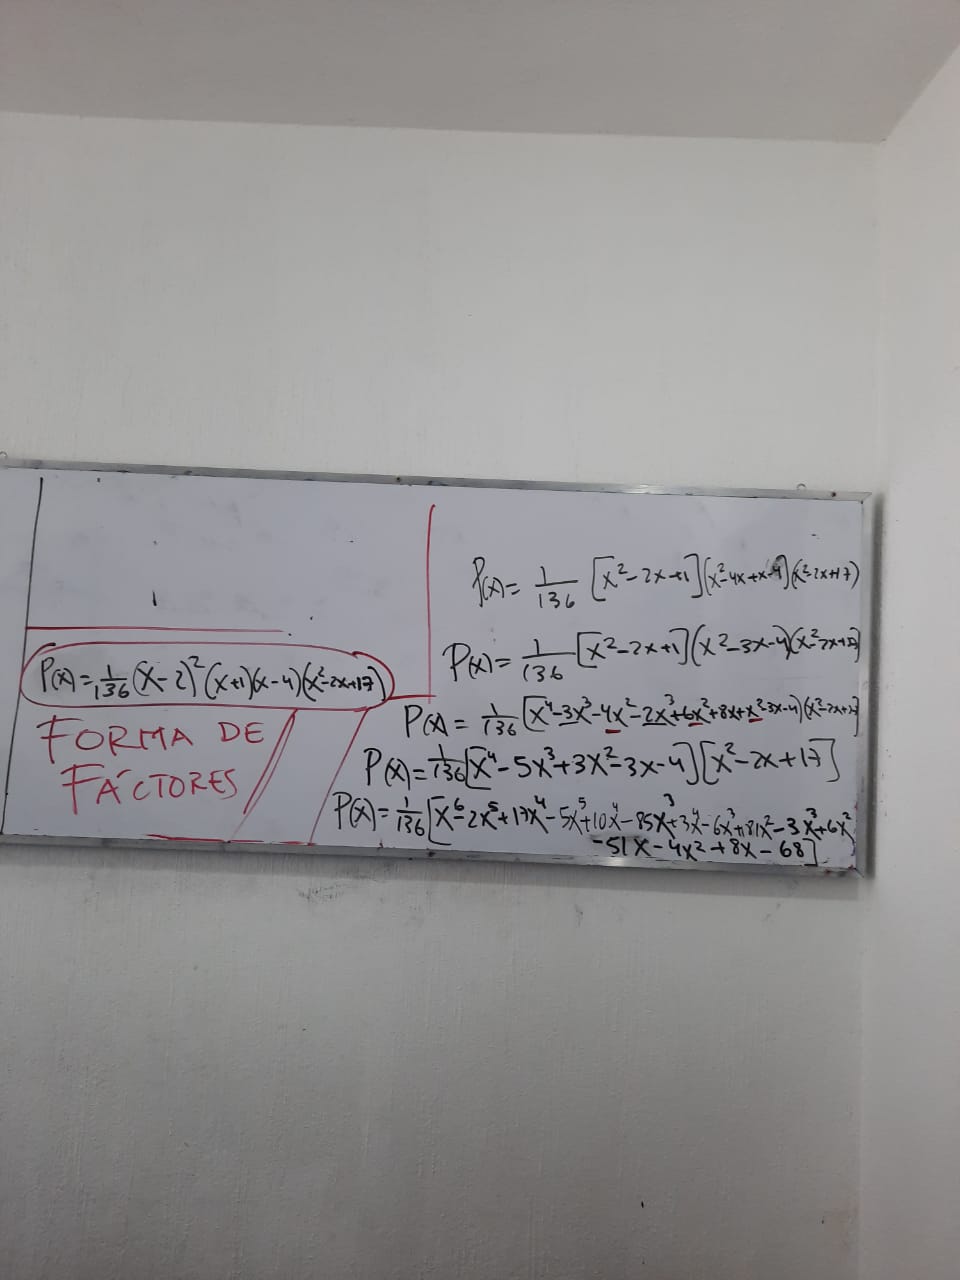 P(x)=1/136 (x-2)²(x+1)(x-4)(x²-2x+17)
FORMA DE
FÁCTORES
P(x)= 1/136 [x²-2x+1](x²-4x+x-4](x²-2x+17)
P(x)= 1/136 [x²-2x+1](x²-3x-4)(x²-2x+17)
P(x)= 1/136 [x⁴-3x³-4x²-2x³+6x²+8x+x²-3x-4)(x²-2x+17]
P(x)=1/136[x⁴-5x³+3x²-3x-4][x²-2x+17]
P(x)=1/136[x⁶-2x⁵+17x⁴-5x⁵+10x⁴-85x³+3x⁴-6x³+81x²-3x³+6x²
-51x-4x²+8x-68]